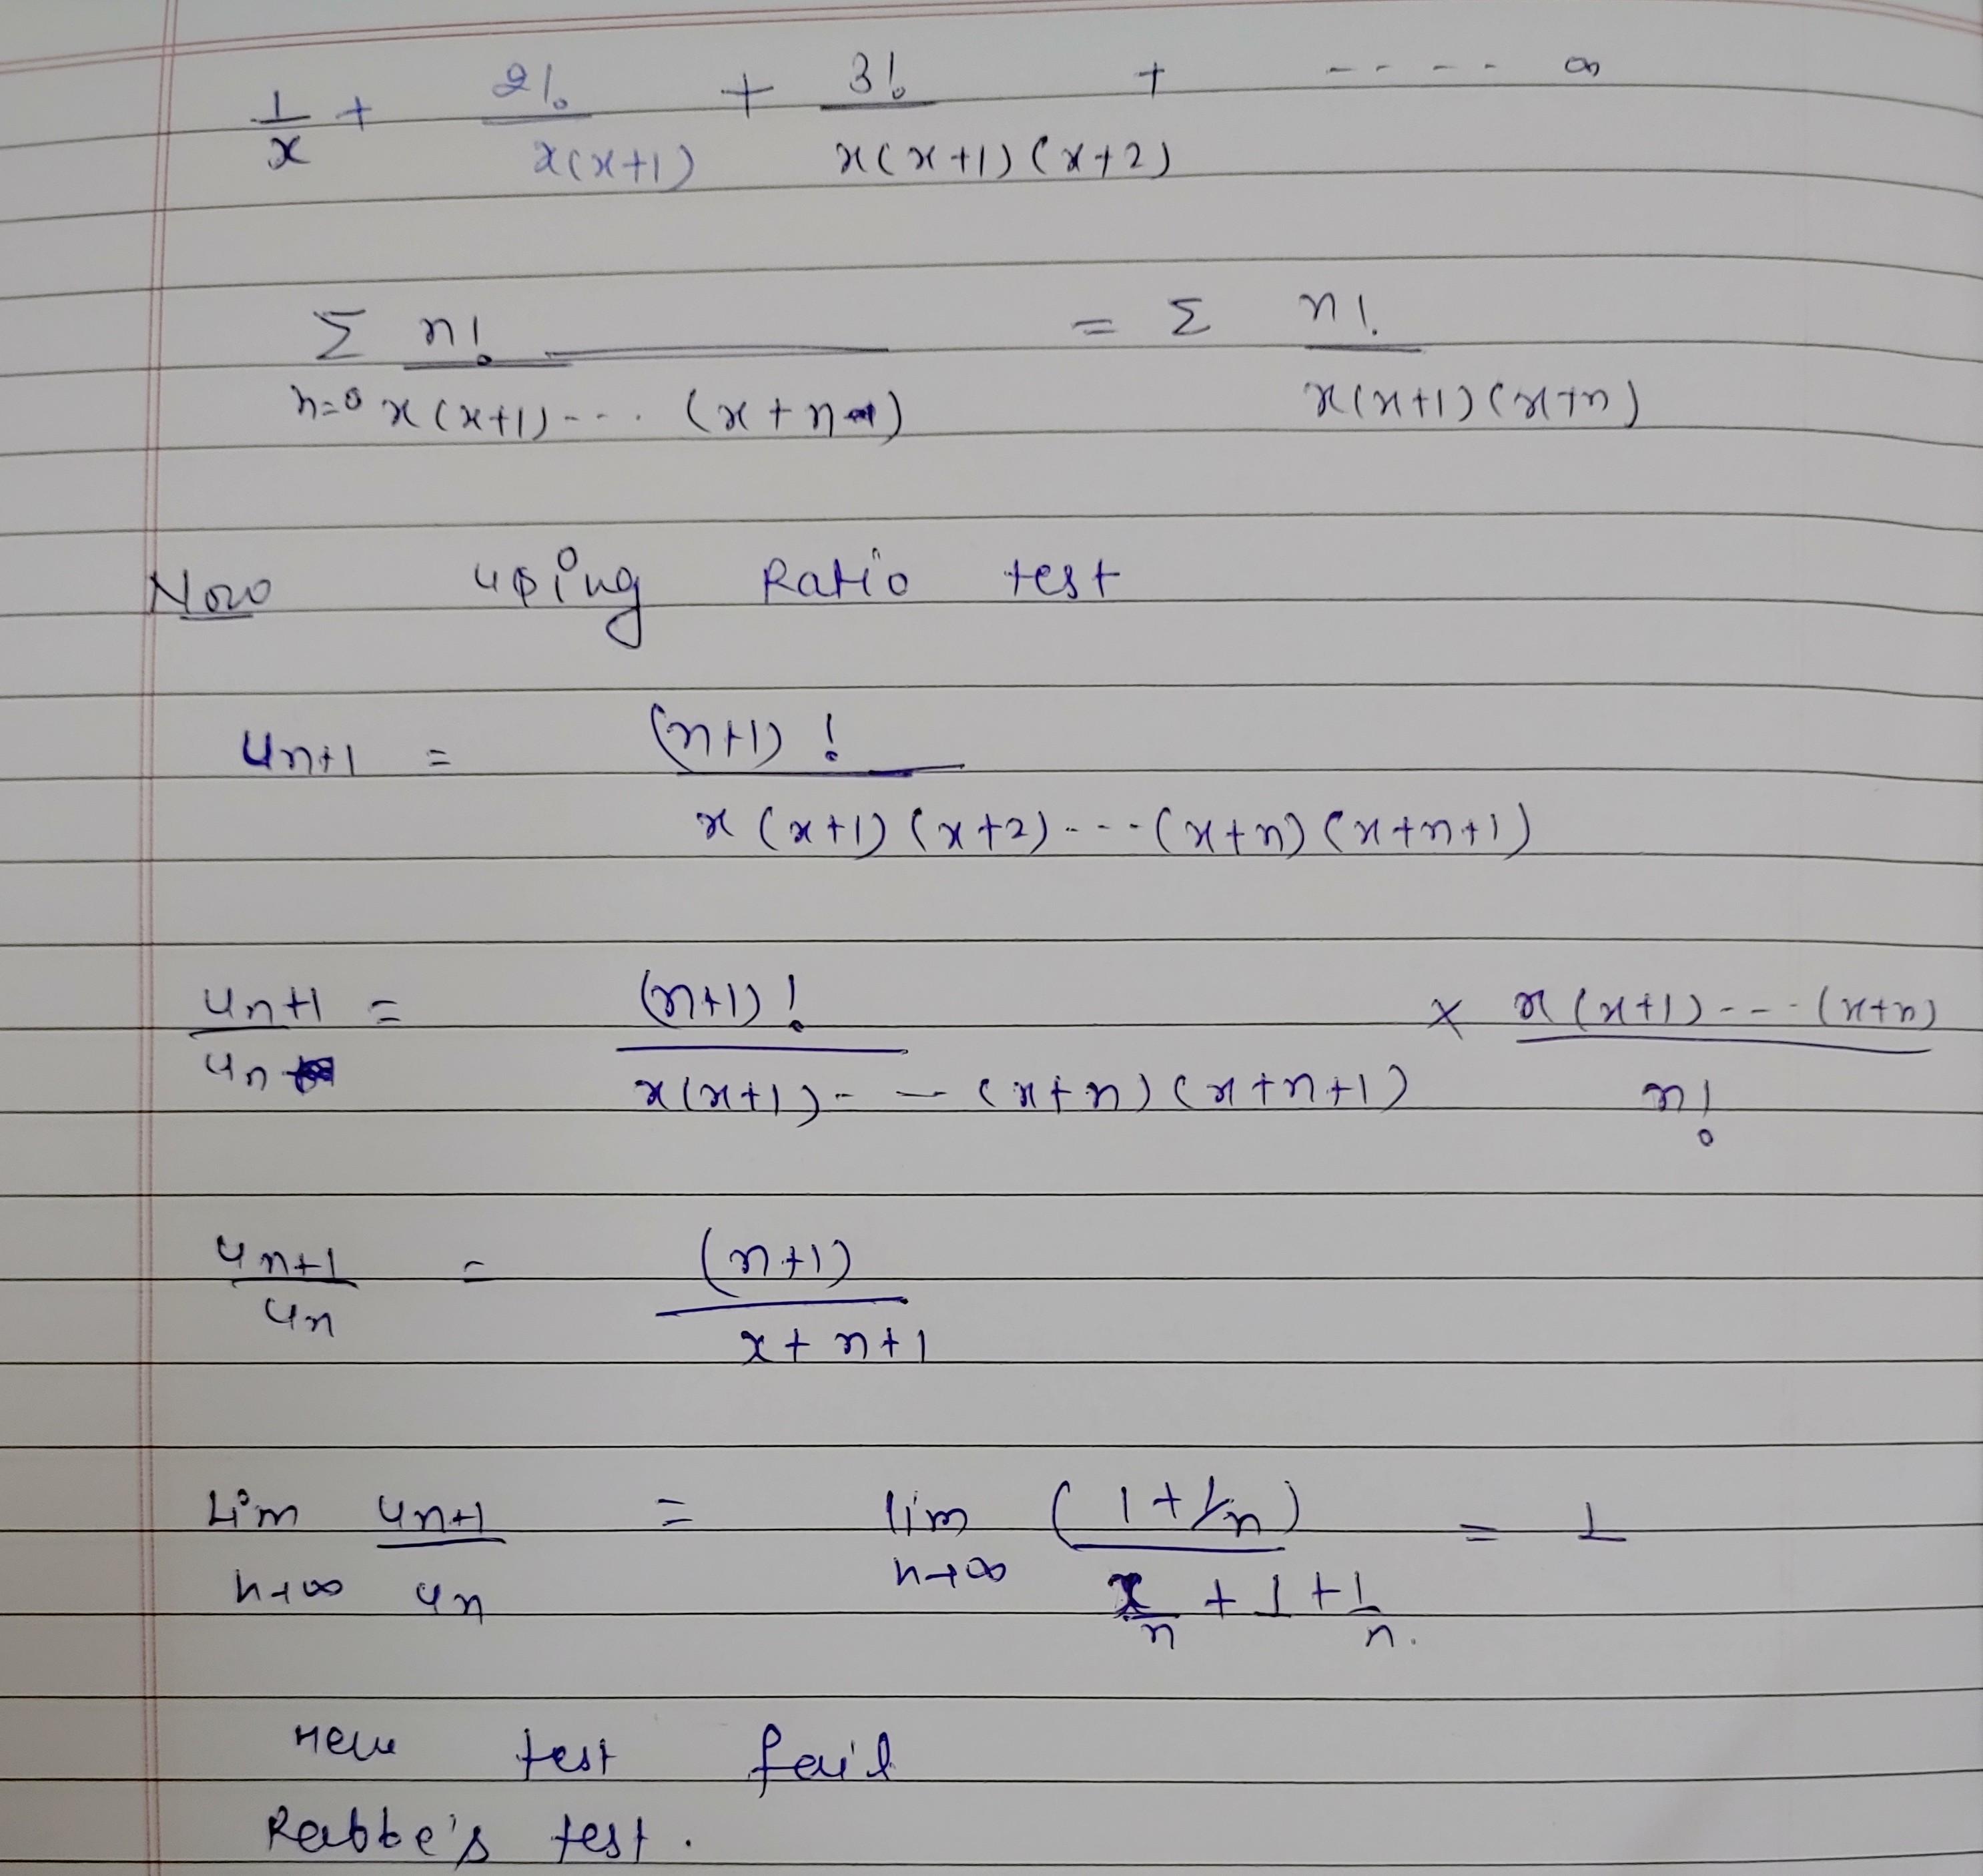 1/x + 2!/x(x+1) + 3!/x(x+1)(x+2) + ----- ∞
Σ n=0 n!/x(x+1)---.(x+n) = Σ n!/x(x+1)(x+n)
Now using Ratio test
un+1 = (n+1)!/x(x+1)(x+2)---(x+n)(x+n+1)
un+1/un = (n+1)!/x(x+1)--(x+n)(x+n+1) × x(x+1)---(x+n)/n!
un+1/un = (n+1)/x+n+1
Lim n→∞ un+1/un = lim n→∞ (1+1/n)/x/n+1+1/n. = 1
Here test fail
Rabbe's test.